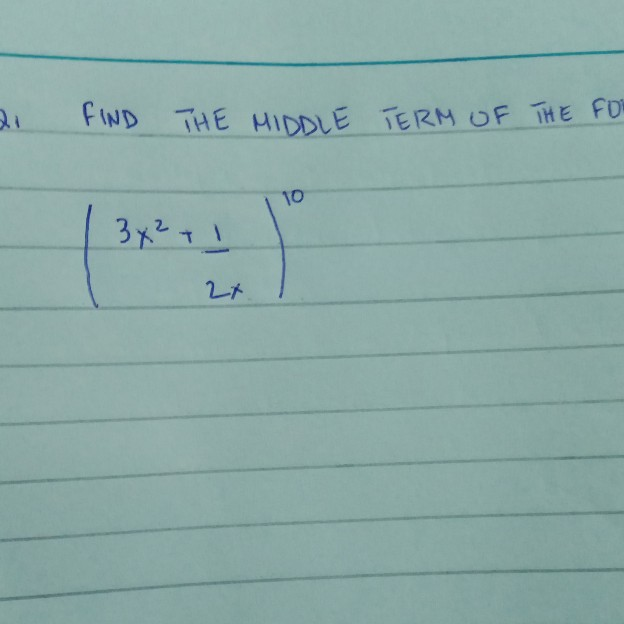 FIND THE MIDDLE TERM OF THE
(3x² + 1/2x)¹⁰